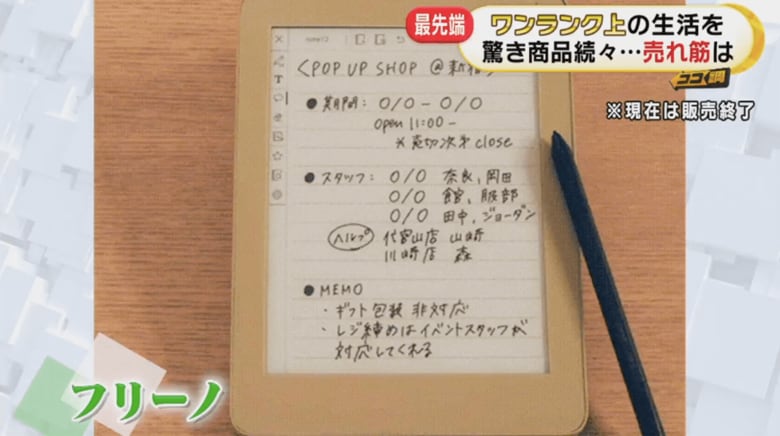 最先端
ワンランク上の生活を
驚き商品続々…売れ筋は
ココ調
※現在は販売終了
<POP UP SHOP @新宿>
● 期間: 0/0 - 0/0
open 11:00 -
※売切次第 close
● スタッフ: 0/0 奈良, 岡田
0/0 舘, 服部
0/0 田中, ジョーダン
ヘルプ 代官山店 山崎
川崎店 森
● MEMO
・ギフト包装 非対応
・レジ締めはイベントスタッフが
対応してくれる
フリーノ